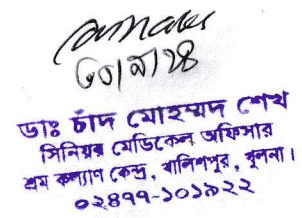 ডাঃ চাঁদ মোহম্মদ শেখ
সিনিয়র মেডিকেল অফিসার
শ্রম কল্যাণ কেন্দ্র, খালিশপুর, খুলনা।
০২৪৭৭-১০১৯২২